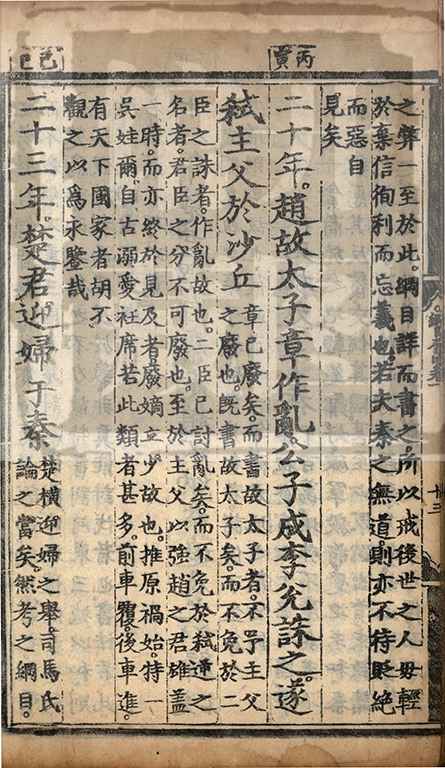 丙寅
之弊一至於此。綱目詳而書之。所以戒後世之人毋輕
於棄信徇利而忘義也。若夫秦之無道。則亦不待貶絶
而惡自
見矣
二十年。趙故太子章作亂。公子成李兌誅之。遂
弑主父於沙丘
章已廢矣。而書故太子者。不予主父
之廢也。旣書故太子矣。而不免於二
臣之誅者。作亂故也。二臣已討亂矣。而不免於弑逆之
名者。君臣之分不可廢也。至於主父以強趙之君雄蓋
一時。而亦終於見及者。廢嫡立少故也。推原禍始。特一
吳娃爾。自古溺愛衽席若此類者甚多。前車覆後車進。
有天下國家者胡不
觀之以爲永鑒哉
己巳
二十三年。楚君迎婦于秦
楚橫迎婦之舉。司馬氏
論之當矣。然考之綱目。
十三